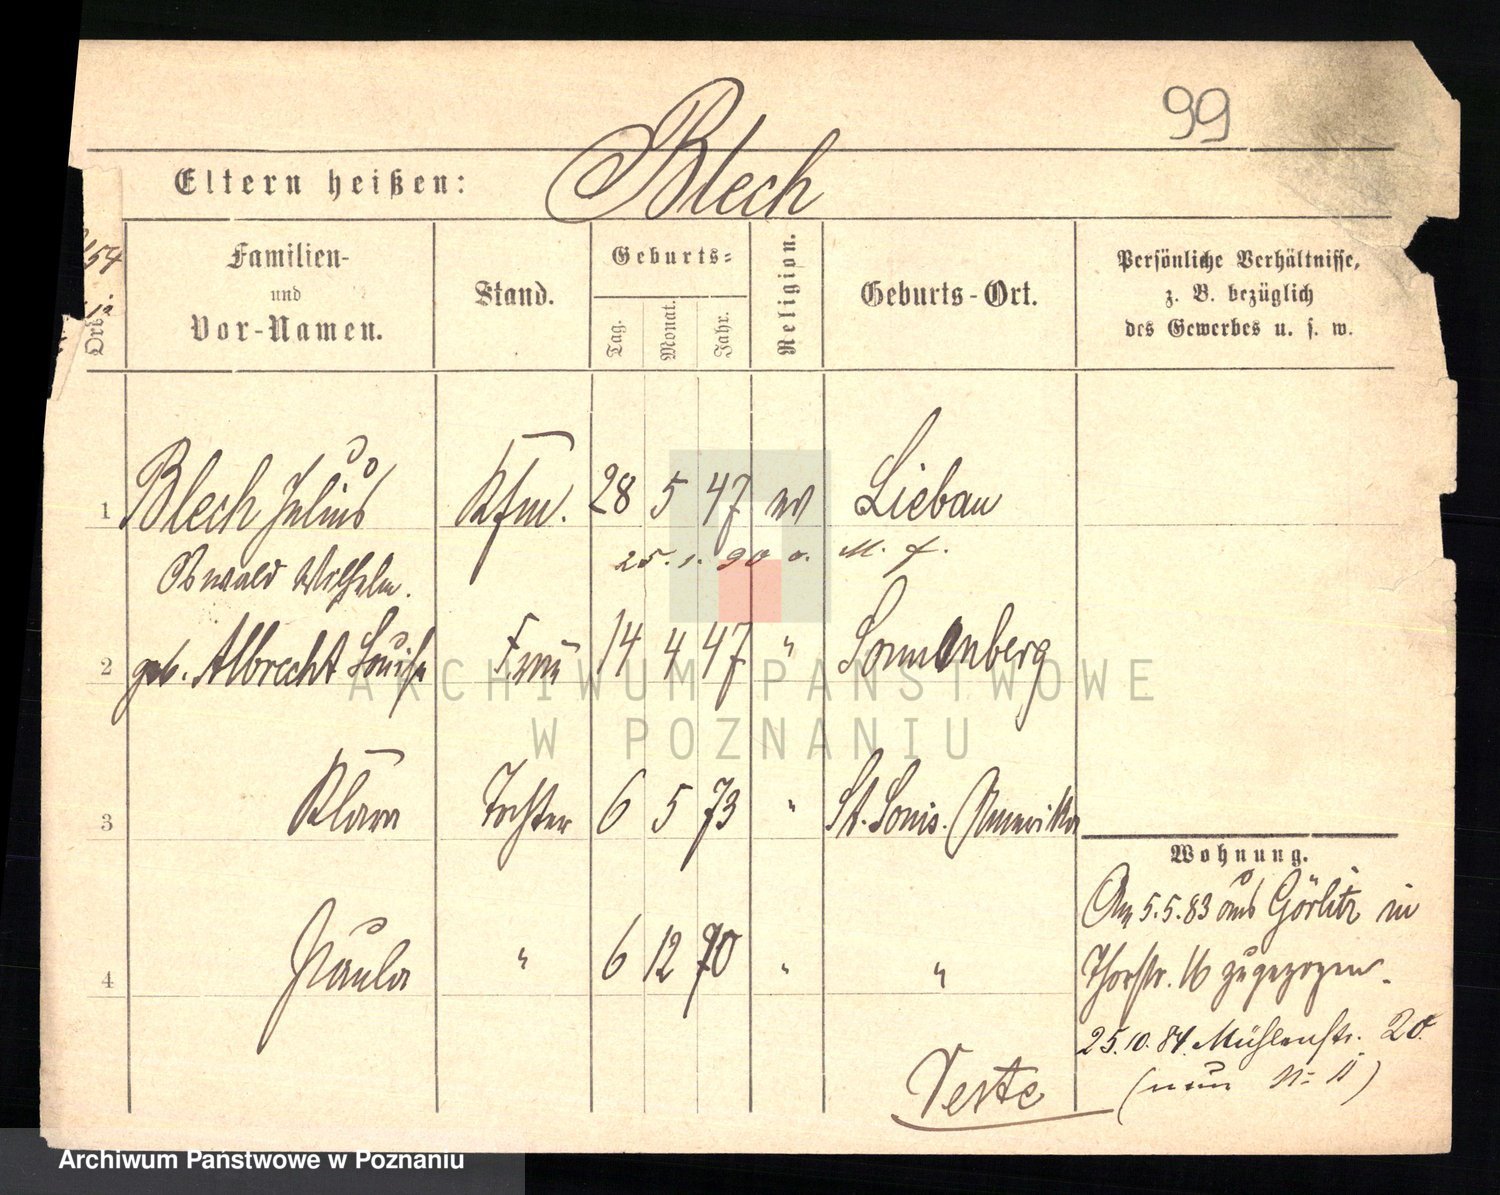 99
Eltern heißen: Blech
Familien- und Vor-Namen.
Stand.
Geburts-
Tag. Monat. Jahr.
Religion.
Geburts-Ort.
Persönliche Verhältnisse, z. B. bezüglich des Gewerbes u. s. w.
54
1 Blech Julius Kfm. 28 5 47 Liebau
Oswald Wilhelm.
25. 1. 90 v. M. f.
2 geb. Albrecht Louise Frau 14 4 47 " Sonnenberg
3 Klara Tochter 6 5 73 " St. Louis. Amerika
4 Paula " 6 12 70 " "
Wohnung.
Am 5.5.83 aus Görlitz in
Thorstr. 16 zugezogen.
25.10.84. Mühlenstr. 20
(neue N= 11)
Verte
ARCHIWUM PAŃSTWOWE
W POZNANIU
Archiwum Państwowe w Poznaniu